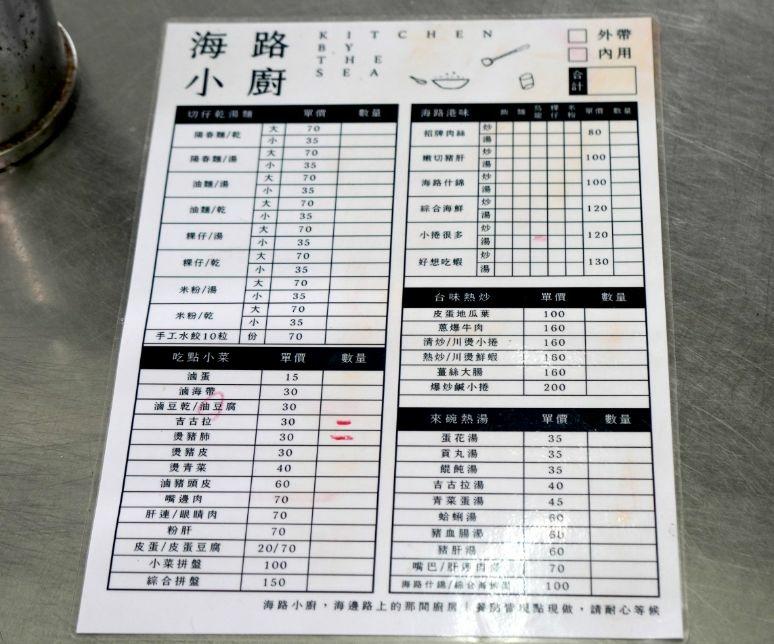 海路小廚
KITCHEN
BY
THE
SEA
外帶
內用
合計
切仔乾湯麵 單價 數量
陽春麵/乾 大 70
小 35
陽春麵/湯 大 70
小 35
油麵/湯 大 70
小 35
油麵/乾 大 70
小 35
粿仔/湯 大 70
小 35
粿仔/乾 大 70
小 35
米粉/湯 大 70
小 35
米粉/乾 大 70
小 35
手工水餃10粒 份 70
吃點小菜 單價 數量
滷蛋 15
滷海帶 30
滷豆乾/油豆腐 30
吉古拉 30
燙豬肺 30
燙豬皮 30
燙青菜 40
滷豬頭皮 60
嘴邊肉 70
肝連/眼睛肉 70
粉肝 70
皮蛋/皮蛋豆腐 20/70
小菜拼盤 100
綜合拼盤 150
海路港味 飯 麵 烏龍 粿仔 米粉 單價 數量
招牌肉絲 炒 湯 80
嫩切豬肝 炒 湯 100
海路什錦 炒 湯 100
綜合海鮮 炒 湯 120
小捲很多 炒 湯 120
好想吃蝦 炒 湯 130
台味熱炒 單價 數量
皮蛋地瓜葉 100
蔥爆牛肉 160
清炒/川燙小捲 160
熱炒/川燙鮮蝦 180
薑絲大腸 160
爆炒鹹小捲 200
來碗熱湯 單價 數量
蛋花湯 35
貢丸湯 35
餛飩湯 35
吉古拉湯 40
青菜蛋湯 45
蛤蜊湯 60
豬血腸湯 60
豬肝湯 60
嘴巴/肝連肉湯 70
海路什錦/綜合海鮮湯 100
海路小廚，海邊路上的那間廚房！餐點皆現點現做，請耐心等候